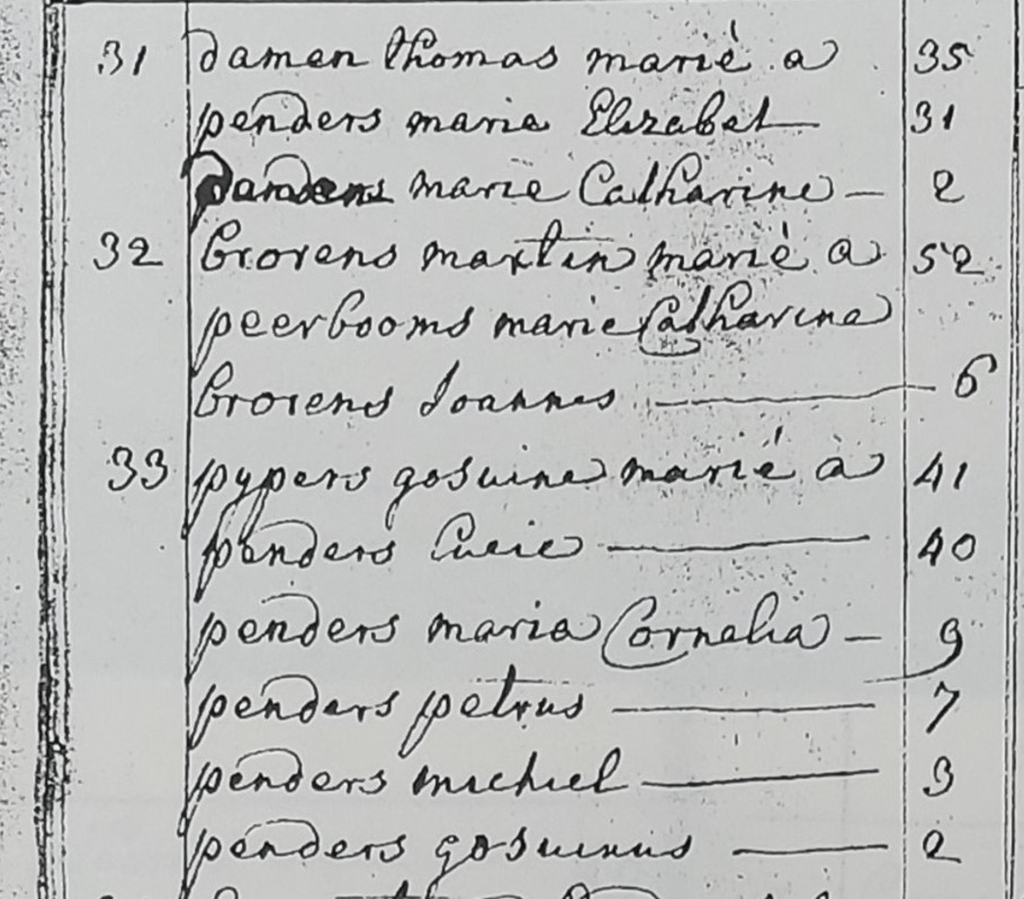 31 damen thomas marié a 35
penders marie Elizabet 31
marie Catharine - 2
32 brorens martin marié a 52
peerbooms marie Catharine
brorens Joannes 6
33 pypers gosuine marié à 41
penders Lucie 40
penders maria Cornelia - 9
penders petrus 7
penders michiel 3
penders gosuinus 2